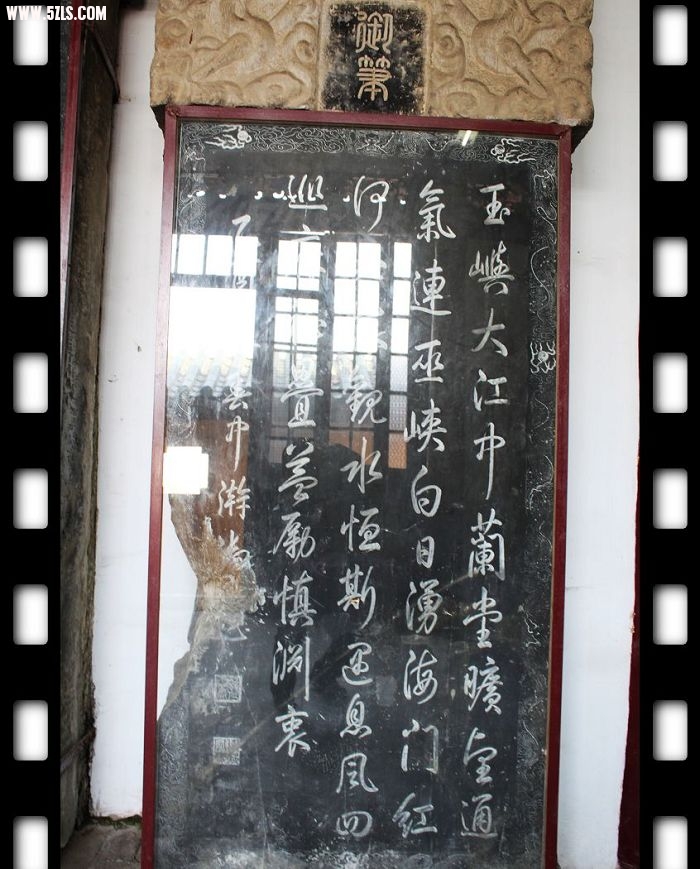 WWW.5ZLS.COM
御筆
玉嶼大江中蘭堂曠望通
氣連巫峽白日湧海門紅
觀水恒斯遇息風四
巡疊益勵慎淵衷
中澣